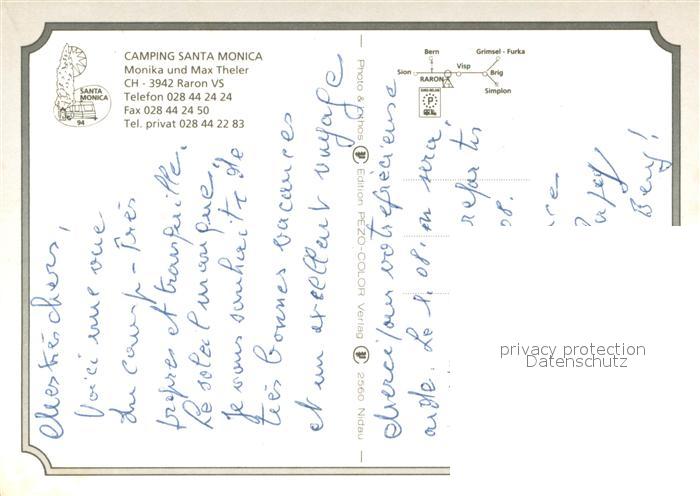 CAMPING SANTA MONICA
Monika und Max Theler
CH - 3942 Raron VS
Telefon 028 44 24 24
Fax 028 44 24 50
Tel. privat 028 44 22 83
SANTA
MONICA
94
Bern
Grimsel - Furka
Sion
Visp
RARON
Brig
Simplon
P
Photo & Lithos Edition PEZO-COLOR Verlag 2560 Nidau
Mes très chers,
Voici une vue
du camp - très
propre et tranquille.
Le soleil manque.
Je vous souhaite de
très bonnes vacances
et un excellent voyage
Merci pour votre précieuse
aide. Le 1.08. on sera
repartis
08.
privacy protection
Datenschutz